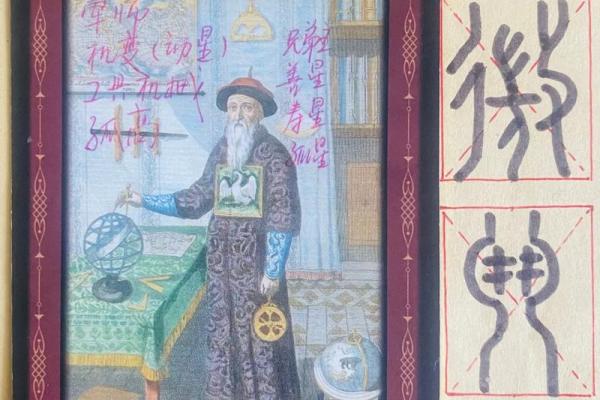 军师
机变（动星）
工具机械
孤高
兄弟主
善星
寿星
孤星